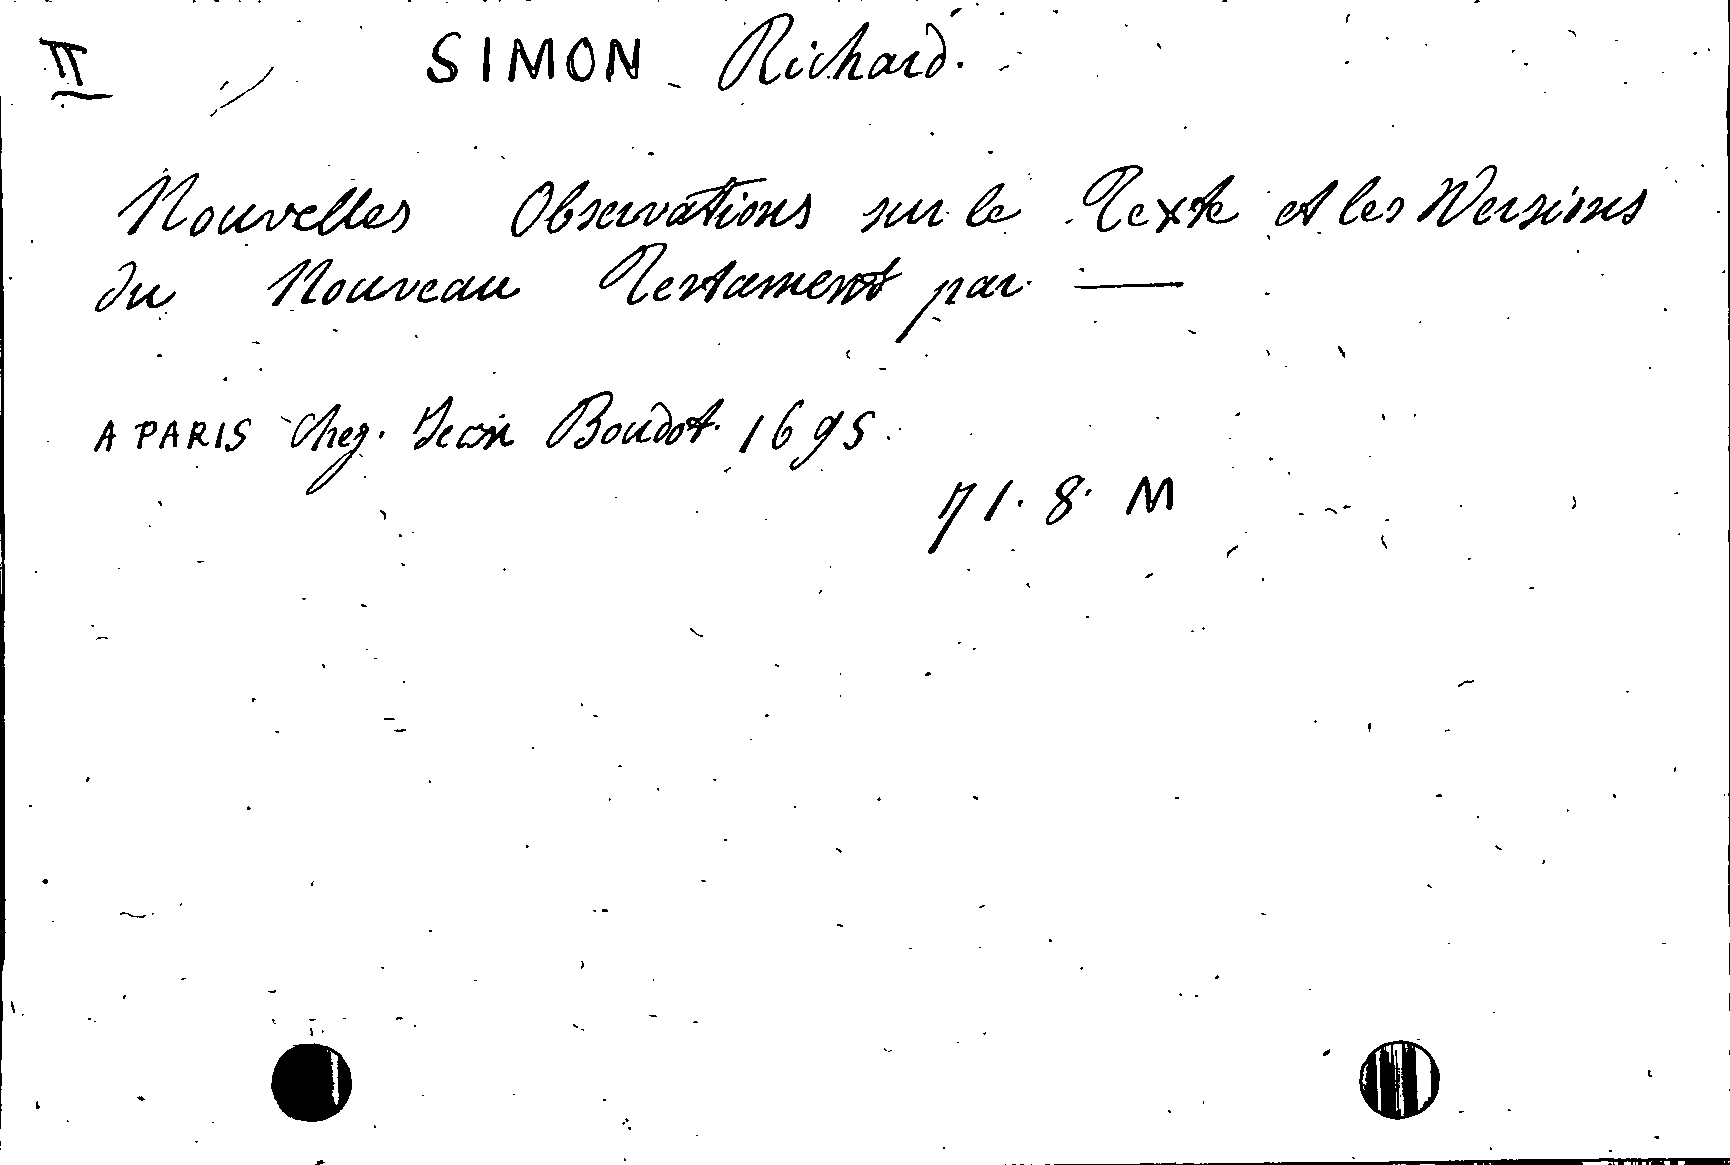 II SIMON Richard.
Nouvelles Observations sur le Texte et les Versions
du Nouveau Testament par —
A PARIS chez Jean Boudot 1695.
71. 8. M